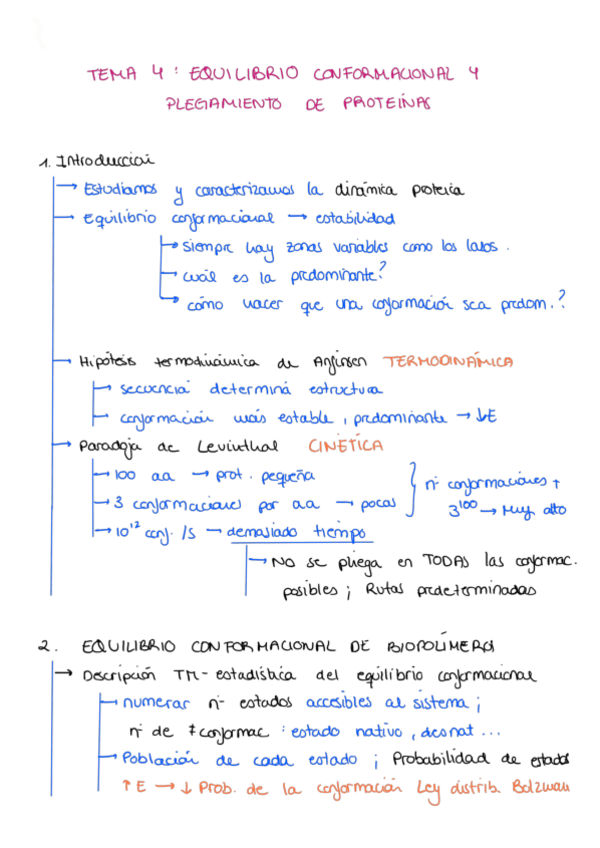 TEMA 4: EQUILIBRIO CONFORMACIONAL Y
PLEGAMIENTO DE PROTEÍNAS
1. Introducción
→ Estudiamos y caracterizamos la dinámica proteica
→ Equilibrio conformacional → estabilidad
→ siempre hay zonas variables como los lazos.
→ cuál es la predominante?
→ cómo hacer que una conformación sea predom.?
→ Hipótesis termodinámica de Anfinsen TERMODINÁMICA
→ secuencia determina estructura
→ conformación más estable, predominante → ↓E
→ Paradoja de Levinthal CINÉTICA
→ 100 aa → prot. pequeña
→ 3 conformaciones por aa → pocas } nº conformaciones +
3^100 → Muy alto
→ 10^12 conf. /s → demasiado tiempo
→ NO se pliega en TODAS las conformac.
posibles; Rutas predeterminadas
2. EQUILIBRIO CONFORMACIONAL DE BIOPOLÍMEROS
→ Descripción TM-estadística del equilibrio conformacional
→ numerar nº estados accesibles al sistema;
nº de ≠ conformac : estado nativo, desnat...
→ Población de cada estado; Probabilidad de estados
↑E → ↓ Prob. de la conformación Ley distrib. Bolzman